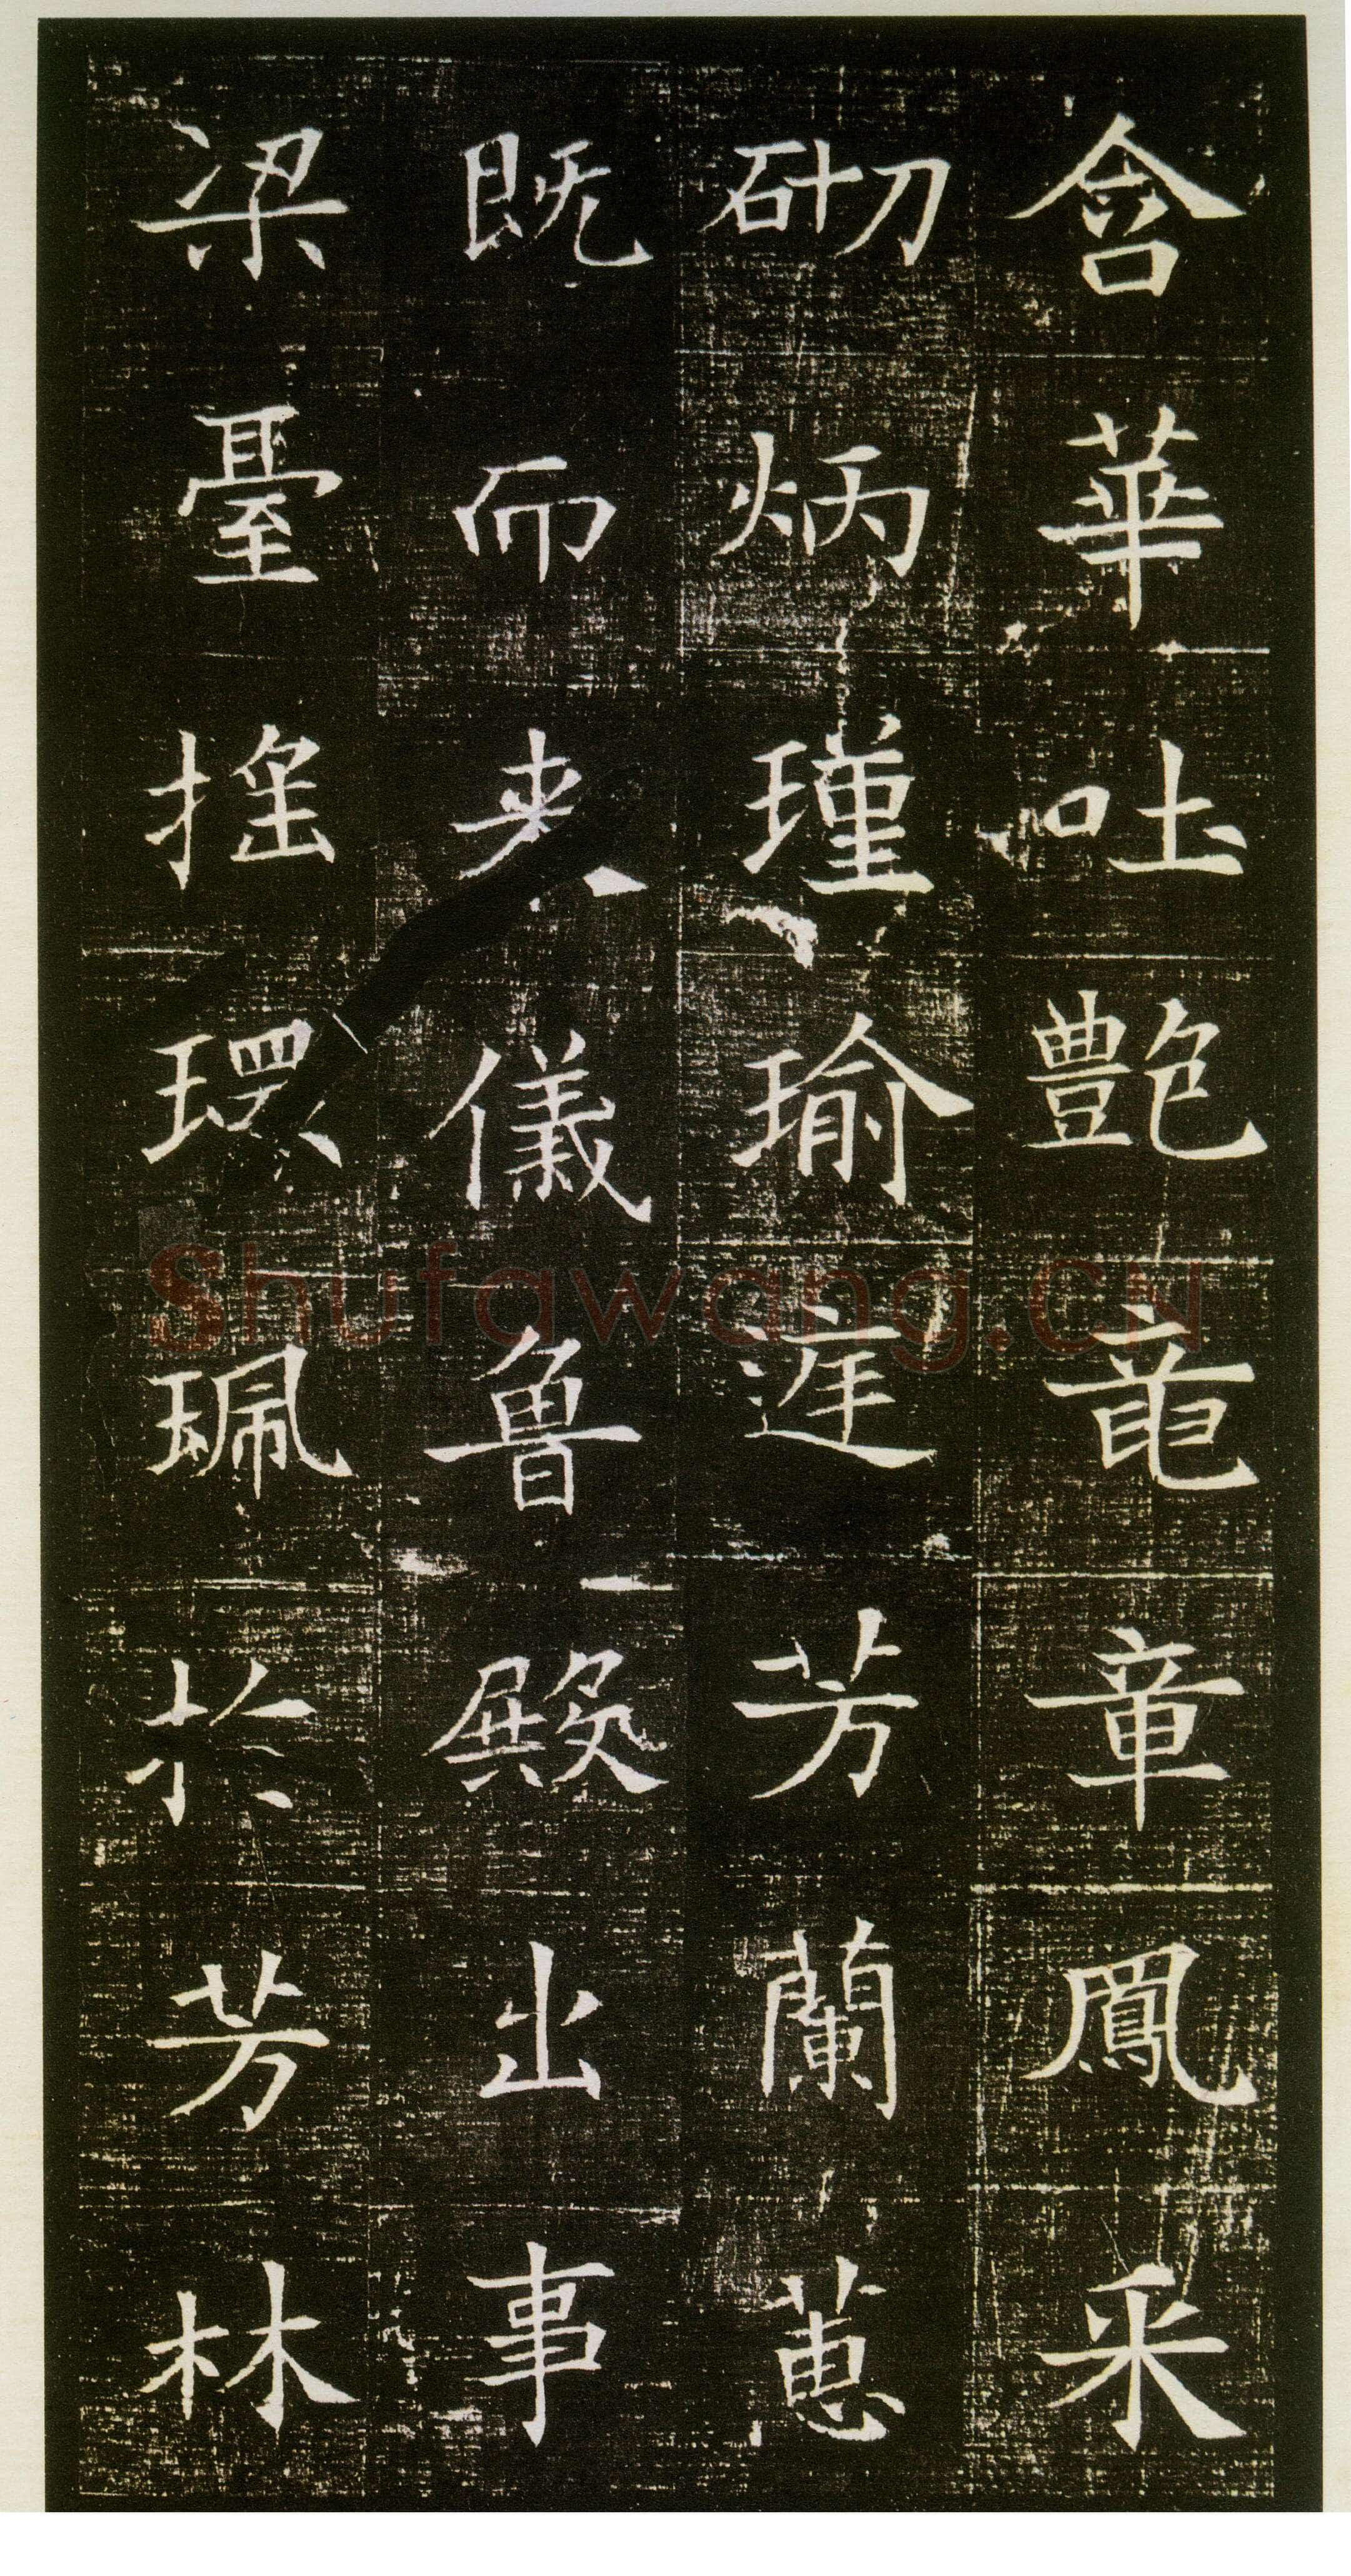 含華吐艷竜章鳳采
砌炳瑾瑜庭芳蘭蕙
既而来儀魯殿出事
梁臺搖環珮於芳林
Shufawang.CN